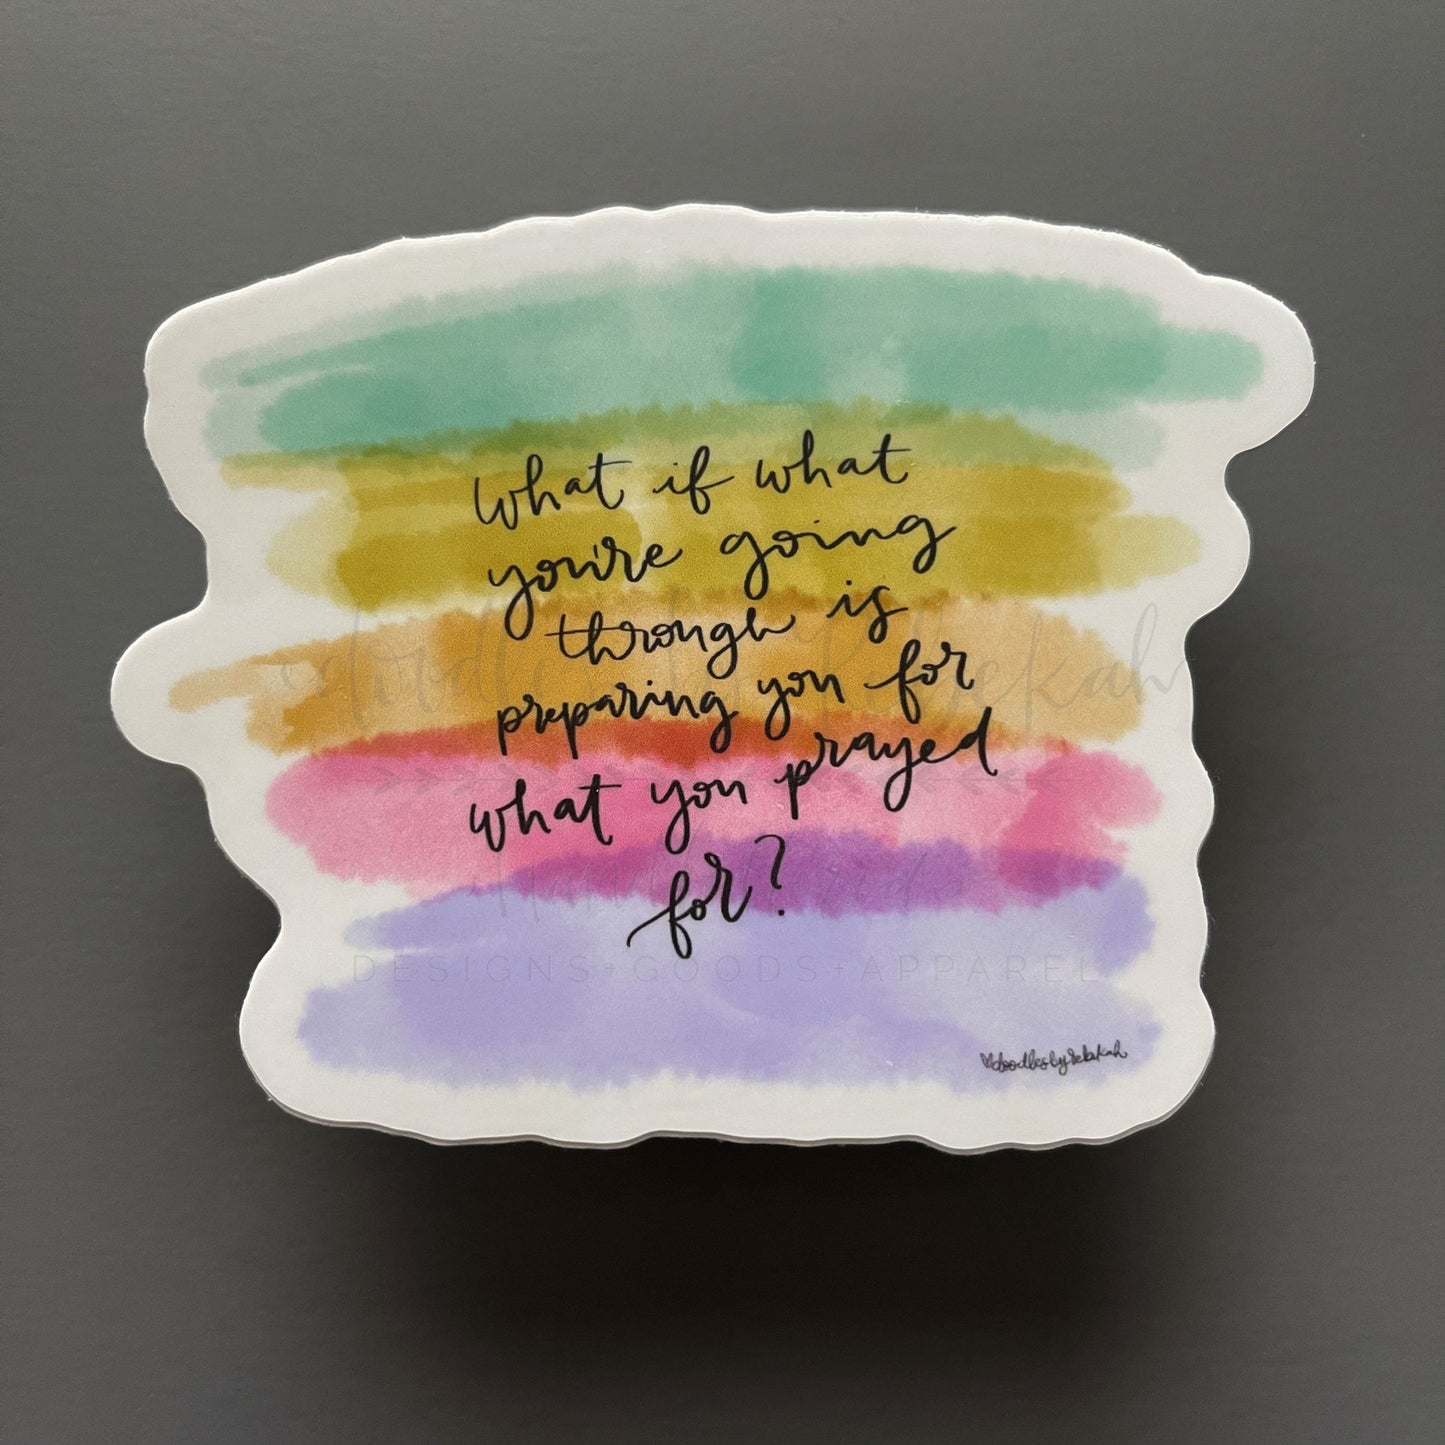 what if what
you're going
through is
preparing you for
what you prayed
for?
doodles by Rebekah
DESIGNS+GOODS+APPAREL
doodlesbyrebekah